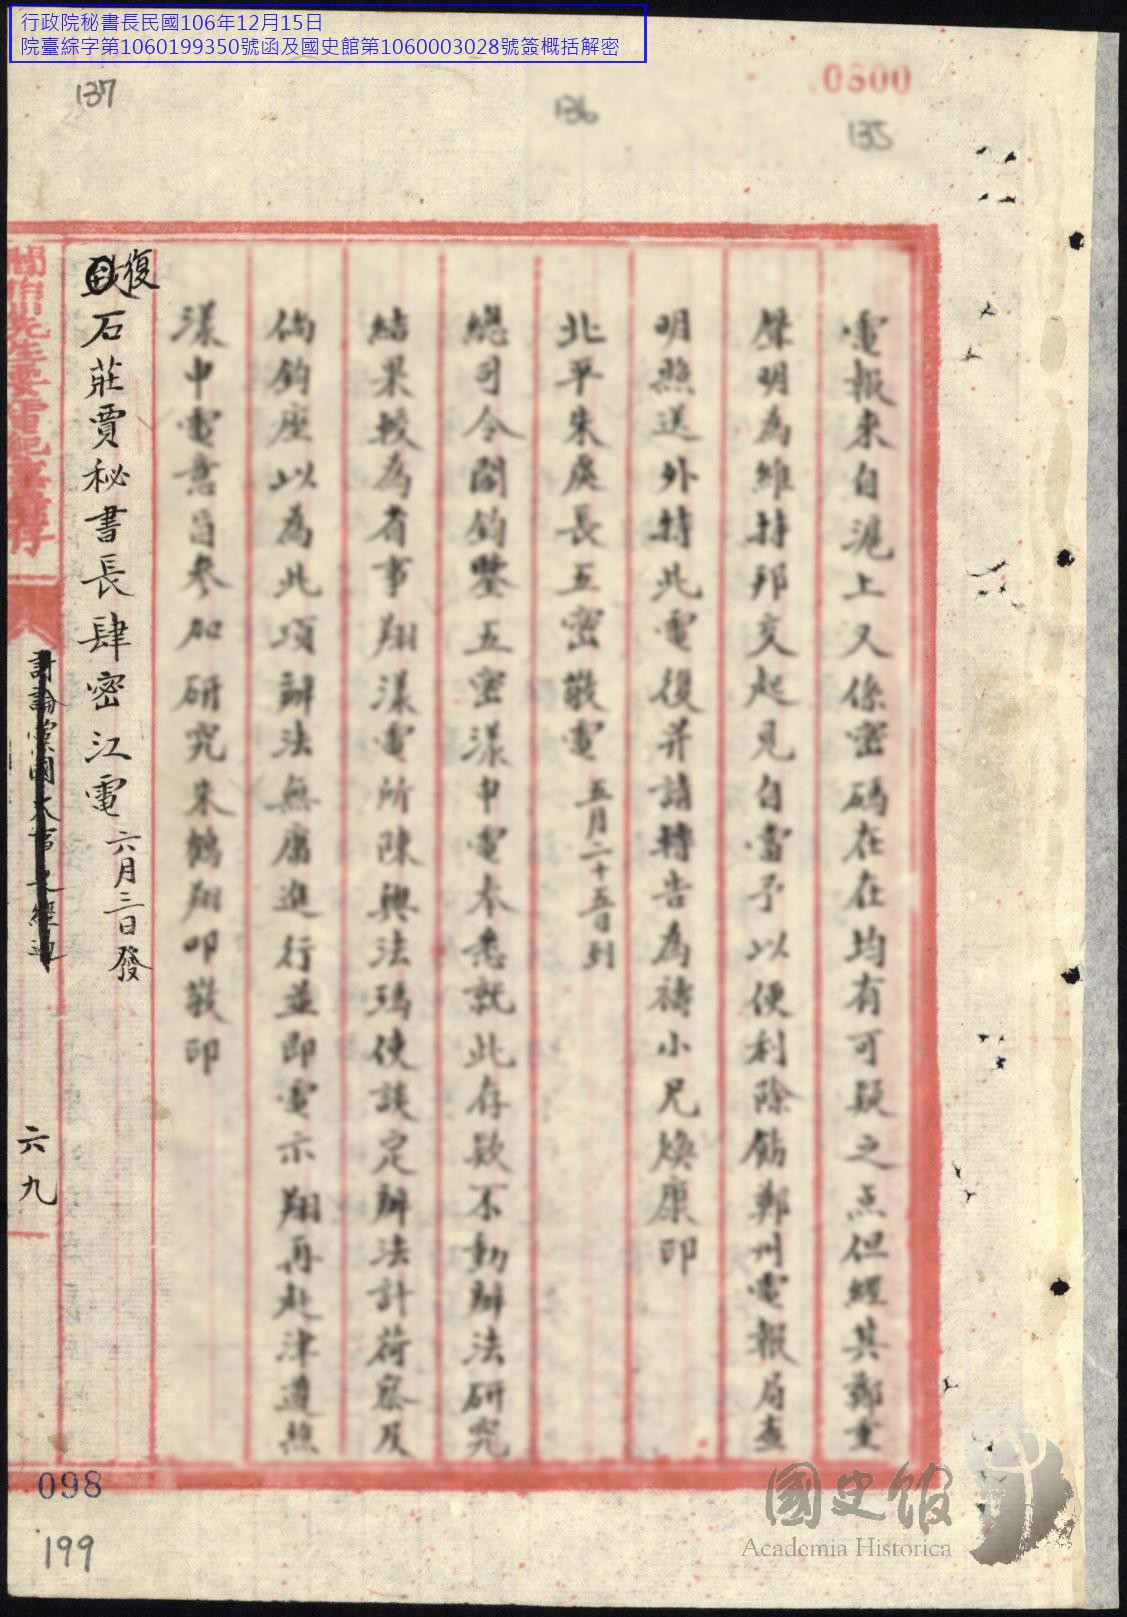 行政院秘書長民國106年12月15日
院臺綜字第1060199350號函及國史館第1060003028號簽概括解密
0800
137
136
135
電報來自滬上又係密碼在在均有可疑之点但經其鄭重
聲明為維持邦交起見自當予以便利除飭鄭州電報局查
明照送外特此電復并請轉告為禱小兄煥康印
北平朱庚長五密敬電 五月二十五日到
總司令閻鈞鑒五密漾申電奉悉就此存款不動辦法研究
結果較為省事翔漾電所陳與法瑪使談定辦法計荷察及
倘鈞座以為此項辦法無庸進行並即電示翔再赴津遵照
漾申電意旨參加研究朱鶴翔叩敬印
復石莊賈秘書長肆密江電 六月三日發
討論黨國大事之經過
六九
098
199
國史館
Academia Historica